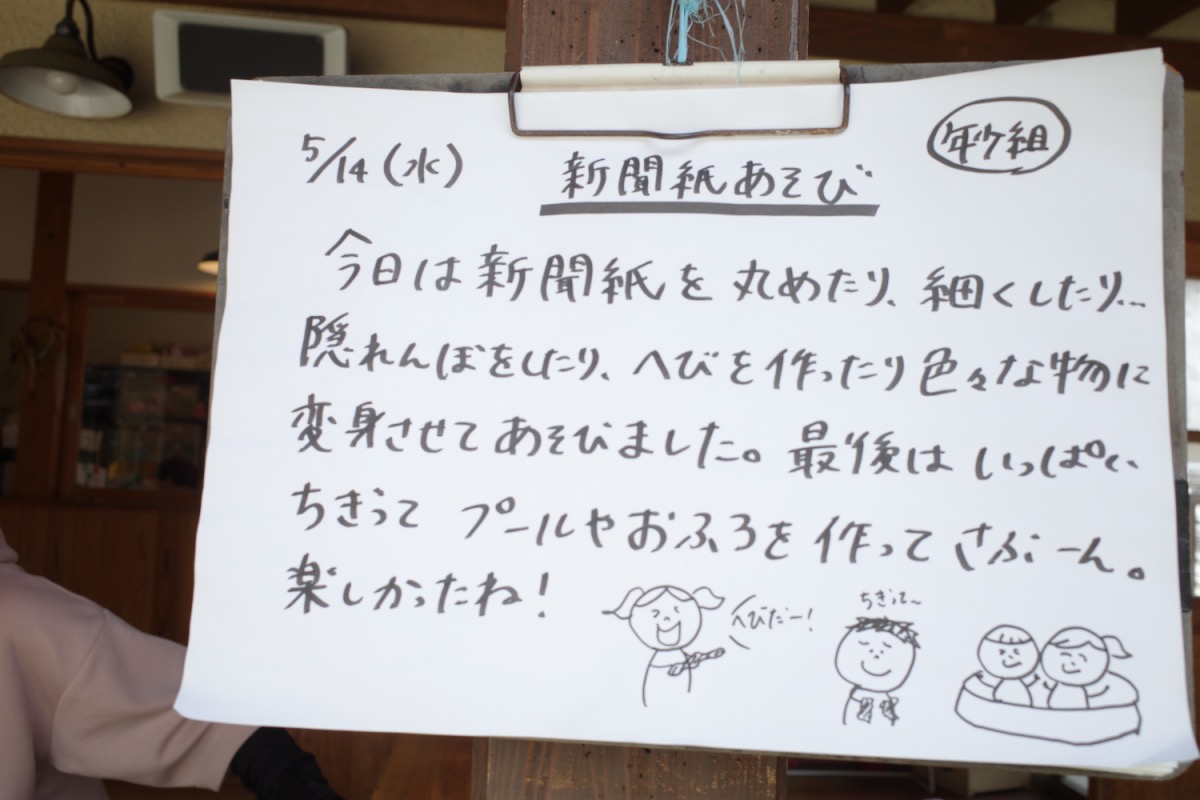 5/14(水)
新聞紙あそび
年少組
今日は新聞紙を丸めたり、細くしたり…
隠れんぼをしたり、へびを作ったり色々な物に
変身させてあそびました。最後はいっぱい
ちぎって プールやおふろを作ってざぶーん。
楽しかったね!
へびだー!
ちぎって〜